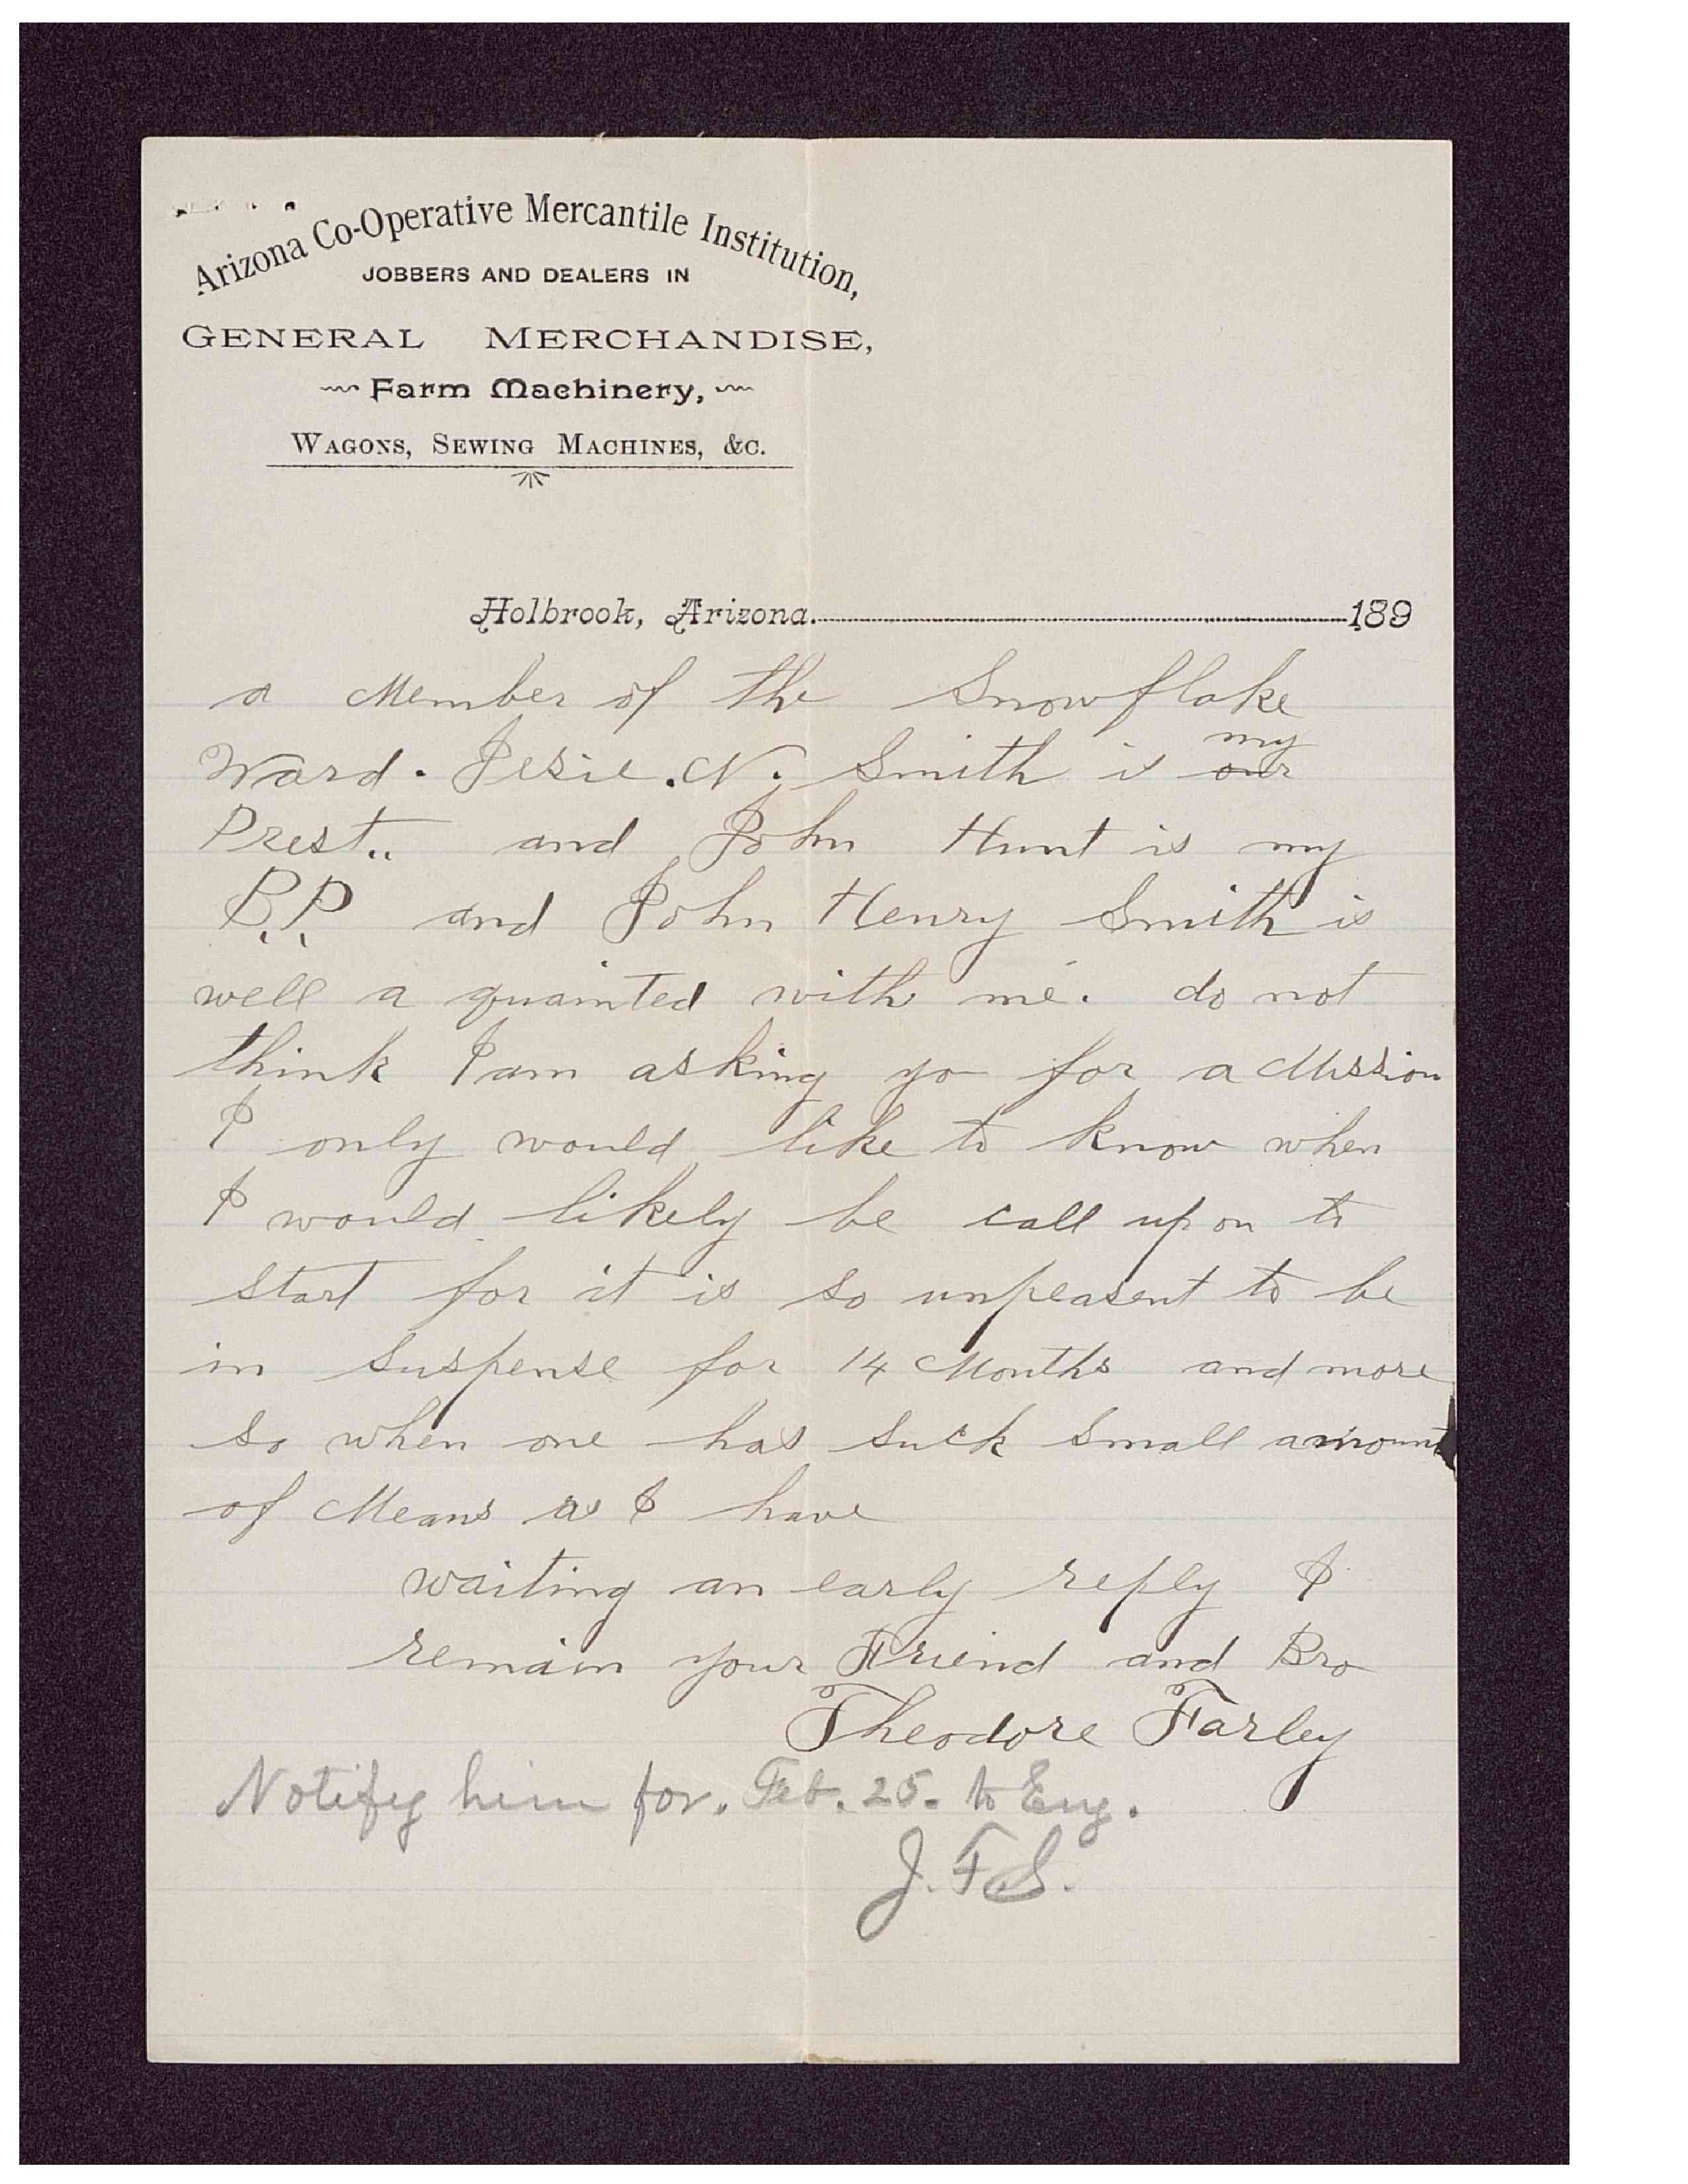 Arizona Co-Operative Mercantile Institution,
JOBBERS AND DEALERS IN
GENERAL MERCHANDISE,
Farm Machinery,
WAGONS, SEWING MACHINES, &C.
Holbrook, Arizona. 189
a Member of the Snowflake
my
Ward. Jesie. N. Smith is our
Prest.. and John Hunt is my
B.P. and John Henry Smith is
well a quainted with me. do not
think I am asking yo for a Mission
I only would like to know when
I would likely be call up on to
start for it is so unpleasent to be
in suspense for 14 Months and more
so when one has suck small amount
of Means as I have
waiting an early reply I
remain your Friend and Bro
Theodore Farley
Notify him for. Feb. 25. to Eng.
J. F. S.